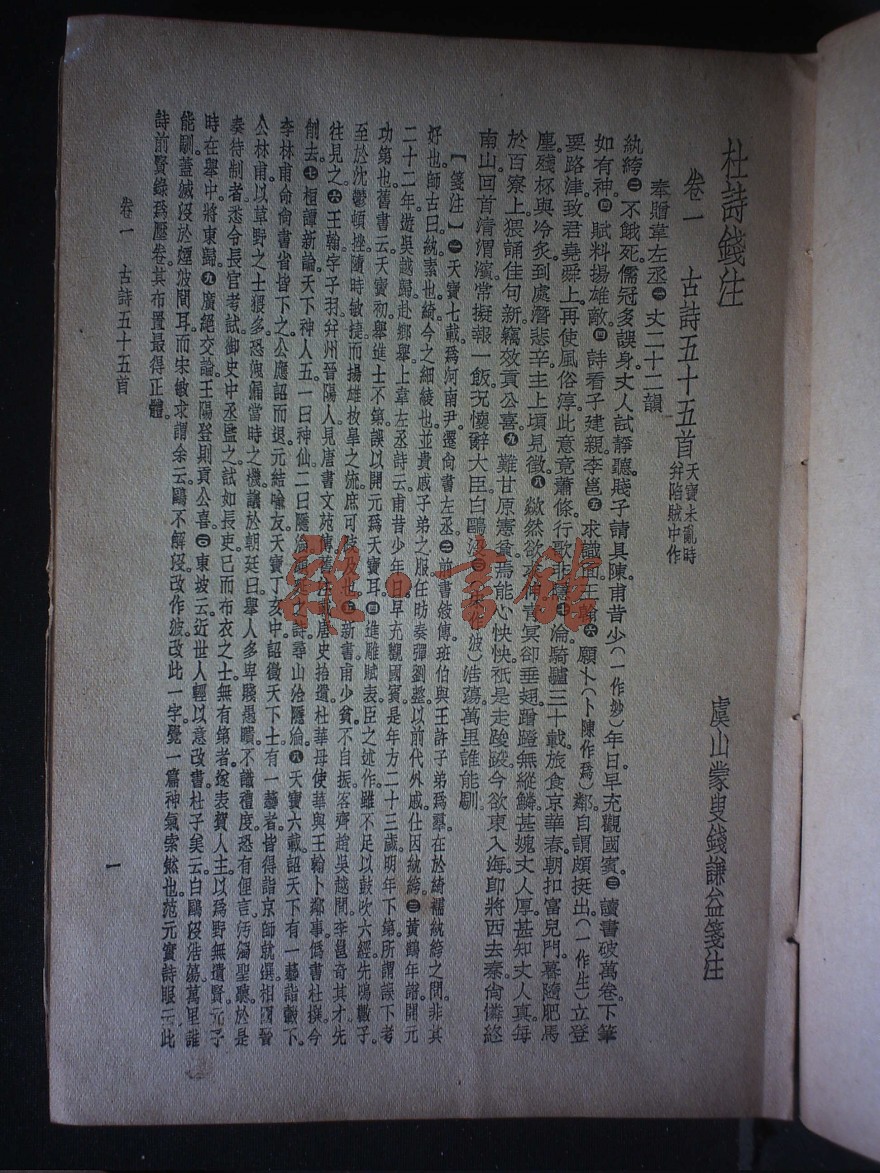 杜詩錢注
虞山蒙叟錢謙益箋注
卷一　古詩五十五首
天寶未亂時
幷陷賊中作
奉贈韋左丞㊀丈二十二韻
紈綺㊁不餓死。儒冠多誤身。丈人試靜聽。賤子請具陳。甫昔少(一作妙)年日。早充觀國賓。㊂讀書破萬卷。下筆
如有神。㊃賦料揚雄敵。㊃詩看子建親。李邕㊄求識面。王翰㊅願卜(卜陳作爲)鄰。自謂頗挺出(一作生)立登
要路津。致君堯舜上。再使風俗淳。此意竟蕭條。行歌非隱㊆淪。騎驢三十載。旅食京華春。朝扣富兒門。暮隨肥馬
塵。殘杯與冷炙。到處潛悲辛。主上頃見徵。㊇歘然欲求伸。靑冥卻垂翅。蹭蹬無縱鱗。甚媿丈人厚。甚知丈人眞。每
於百寮上。猥誦佳句新。竊效貢公喜。㊈難甘原憲貧。焉能心怏怏。祇是走踆踆。今欲東入海。卽將西去秦。尙憐終
南山。回首淸渭濱。常擬報一飯。況懷辭大臣。白鷗沒作波)浩蕩。萬里誰能馴。
【箋注】㊀天寶七載。爲河南尹。遷尙書左丞。㊁前書敍傳。班伯與王許子弟爲羣。在於綺襦紈綺之間。非其
好也。師古曰。紈。素也。綺。今之細綾也。並貴戚子弟之服。任昉奏彈劉整。以前代外戚。仕因紈綺。㊂黃鶴年譜。開元
二十二年。遊吳越歸。赴鄉舉。上韋左丞詩云。甫昔少年日。早充觀國賓。是年方二十三歲。明年下第。所謂誤下考
功第也。舊書云。天寶初。舉進士不第。誤以開元爲天寶耳。㊃進雕賦表。臣之述作。雖不足以鼓吹六經。先鳴數子。
至於沈鬱頓挫。隨時敏捷。而揚雄枚皋之流。庶可企及也。㊄新書。甫少貧不自振。客齊趙吳越間。李邕奇其才。先
往見之。㊅王翰。字子羽。幷州晉陽人。見唐書文苑傳。舊注載唐史拾遺。杜華母使華與王翰卜鄰事。僞書杜撰。今
削去。㊆桓譚新論。天下神人五。一曰神仙。二曰隱淪。顏延之詩。尋山洽隱淪。㊇天寶六載。詔天下有一藝。詣轂下。
李林甫命尙書省皆下之。公應詔而退。元結喻友。天寶丁亥中。詔徵天下士有一藝者。皆得詣京師就選。相國晉
公林甫。以草野之士猥多。恐洩漏當時之機。議於朝廷曰。舉人多卑賤愚瞶。不識禮度。恐有俚言。汚濁聖聽。於是
奏待制者。悉令長官考試。御史中丞監之。試如長吏。已而布衣之士。無有第者。遂表賀人主。以爲野無遺賢。元子
時在舉中。將東歸。㊈廣絕交論。王陽登則貢公喜。㊂東坡云。近世人輕以意改書。杜子美云。白鷗沒浩蕩。萬里誰
能馴。蓋滅沒於煙波間耳。而宋敏求謂余云。鷗不解沒。改作波。改此一字。覺一篇神氣索然也。范元實詩眼云。此
詩前賢錄爲壓卷。其布置最得正體。
卷一　古詩五十五首
一
雜·書館